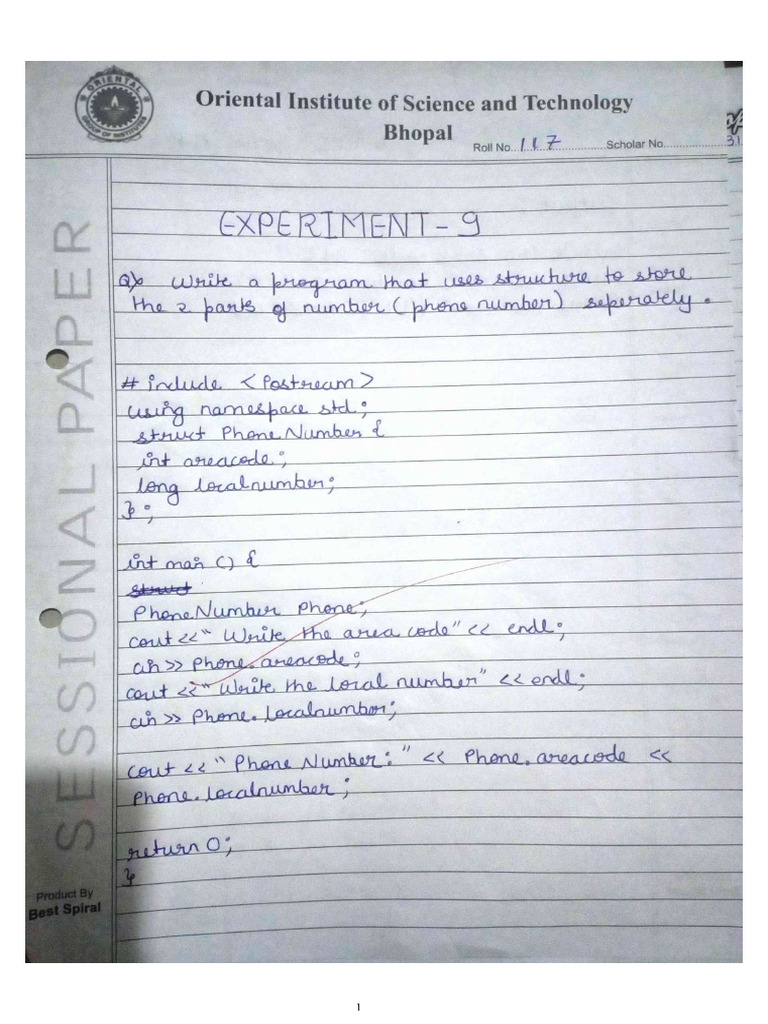 ORIENTAL
GROUP OF INSTITUTES
Oriental Institute of Science and Technology
Bhopal
Roll No. 117 Scholar No.
31
SESSIONAL PAPER
EXPERIMENT - 9
Q) Write a program that uses structure to store
the 2 parts of number (phone number) seperately.
# include <iostream>
using namespace std;
struct PhoneNumber {
int areacode;
long localnumber;
};
int main () {
struct
PhoneNumber Phone;
cout << "Write the area code" << endl;
cin >> Phone.areacode;
cout << "Write the local number" << endl;
cin >> Phone.localnumber;
cout << "Phone Number:" << Phone.areacode <<
Phone.localnumber;
return 0;
}
Product By
Best Spiral
1